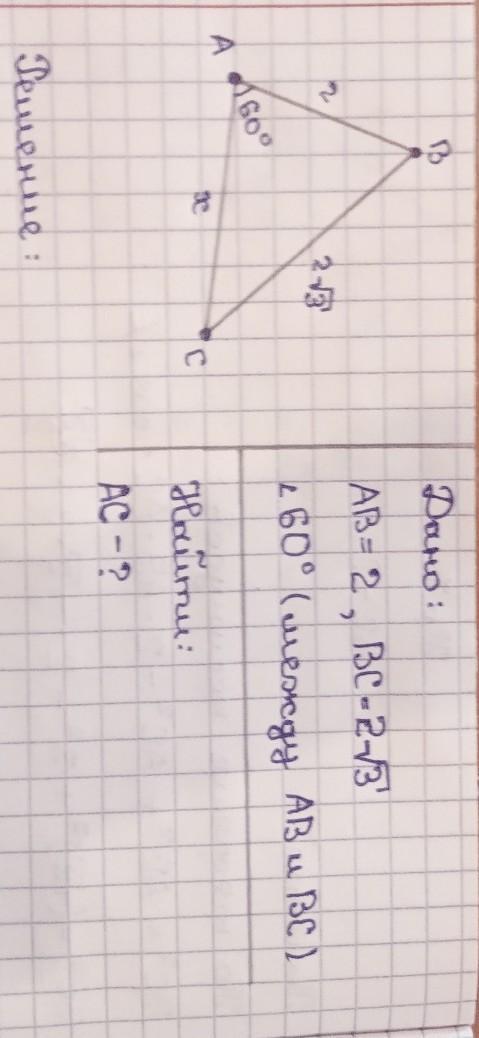 B
2
2√3
60°
A
x
C
Решение:
Дано:
AB = 2, BC = 2√3
∠60° (между AB и BC)
Найти:
AC - ?